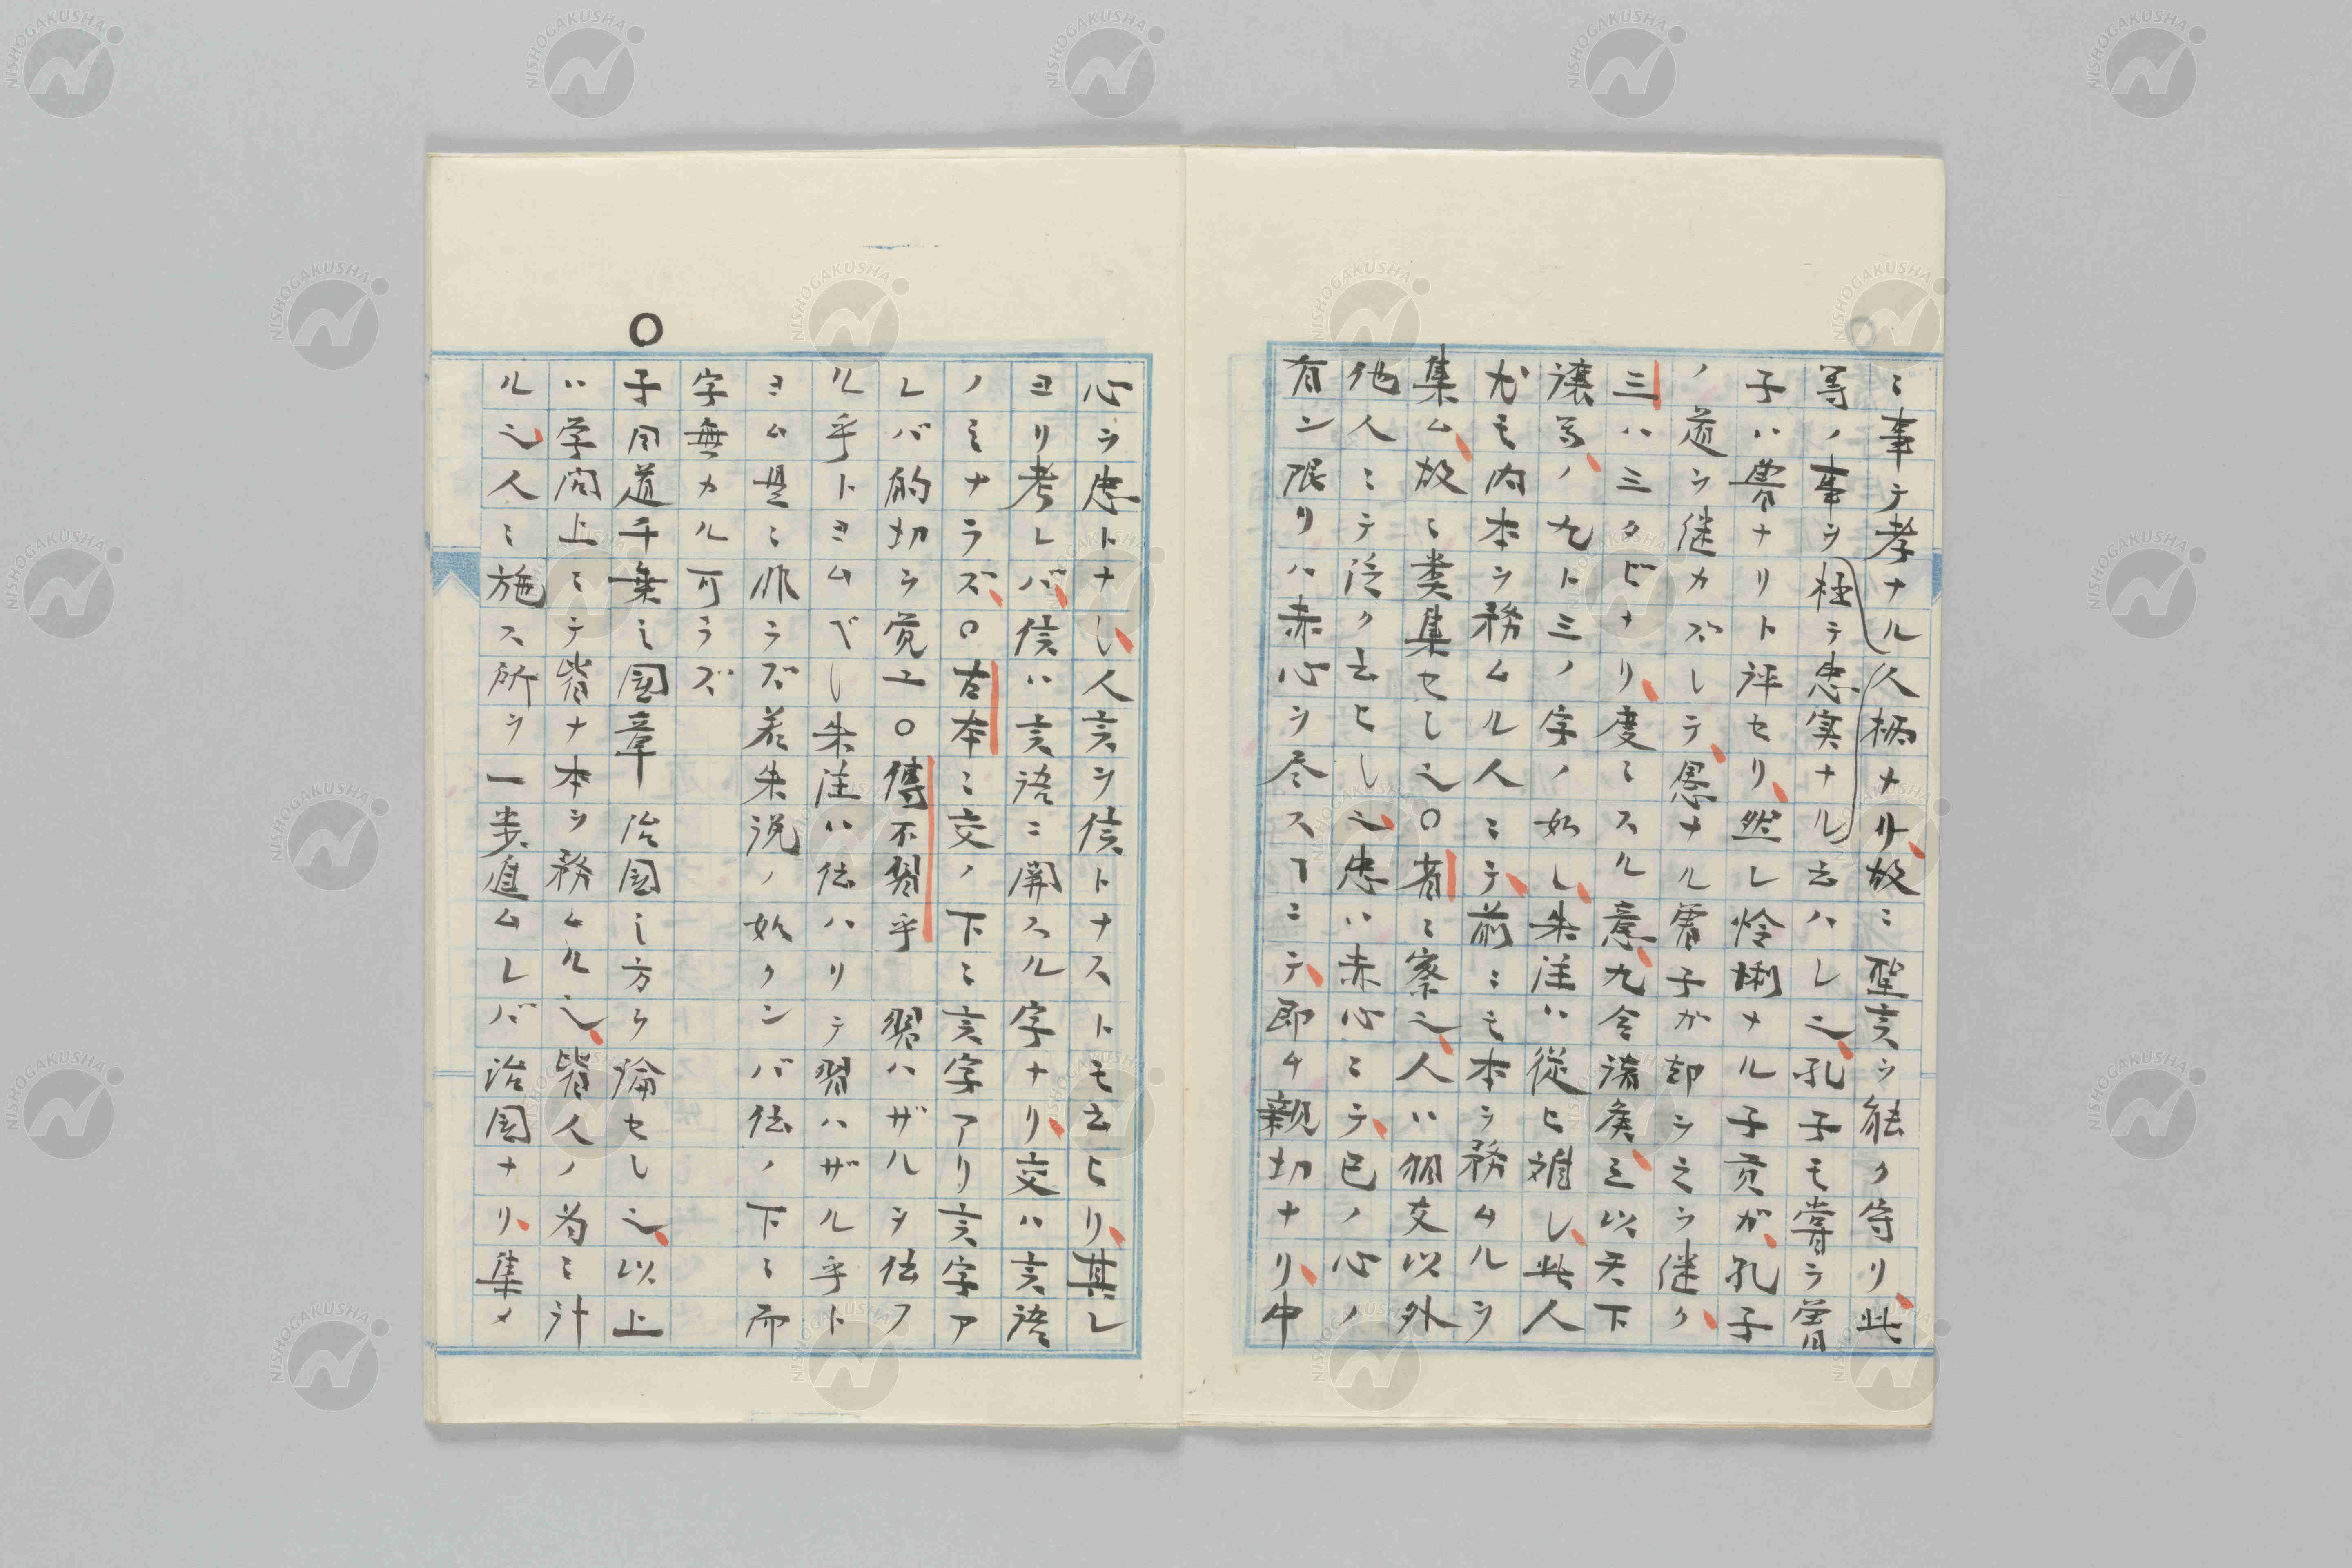 ニ事テ孝ナル人柄ナリ故ニ聖言ヲ能ク守リ此
等ノ事ヲ極テ忠実ナル云ハレ之孔子モ嘗ラ曽
子ハ魯ナリト評セリ然レ怜悧ナル子貢ガ孔子
ノ道ヲ継カズシテ愚ナル曽子ガ却ラ之ヲ継ク
三ハ三タビナリ度ニスル意九合諸矦三以天下
讓等ノ九ト三ノ字ノ如し朱注ハ從ヒ難し此人
尤モ内本ヲ務ムル人ニテ前ニモ本ヲ務ムルヲ
集ム故ニ类集セし之○者ニ察之人ハ朋友以外
他人ニテ泛ク云ヒし之忠ハ赤心ニテ已ノ心ノ
有ン限リハ赤心ヲ尽スヿニテ即チ親切ナリ中
心ヲ忠トナし人言ヲ信トナストモ云ヒリ其レ
ヨリ考レバ信ハ言語ニ関スル字ナリ交ハ言語
ノミナラズ○古本ニ交ノ下ニ言字アリ言字ア
レバ的切ヲ覚ユ○傳不習乎 習ハザルヲ伝フ
ル乎トヨムベし朱注ハ伝ハリテ習ハザル乎ト
ヨム是ニ非ラズ若朱説ノ如クンバ伝ノ下ニ而
字無カル可ラズ
○子曰道千乗之國章 治國之方ゟ論セし之以上
ハ学问上ニテ皆ナ本ヲ務ムル之皆人ノ为ニ計
ル之人ニ施ス所ヲ一歩進ムレバ治国ナリ集メ
NISHOGAKUSHA